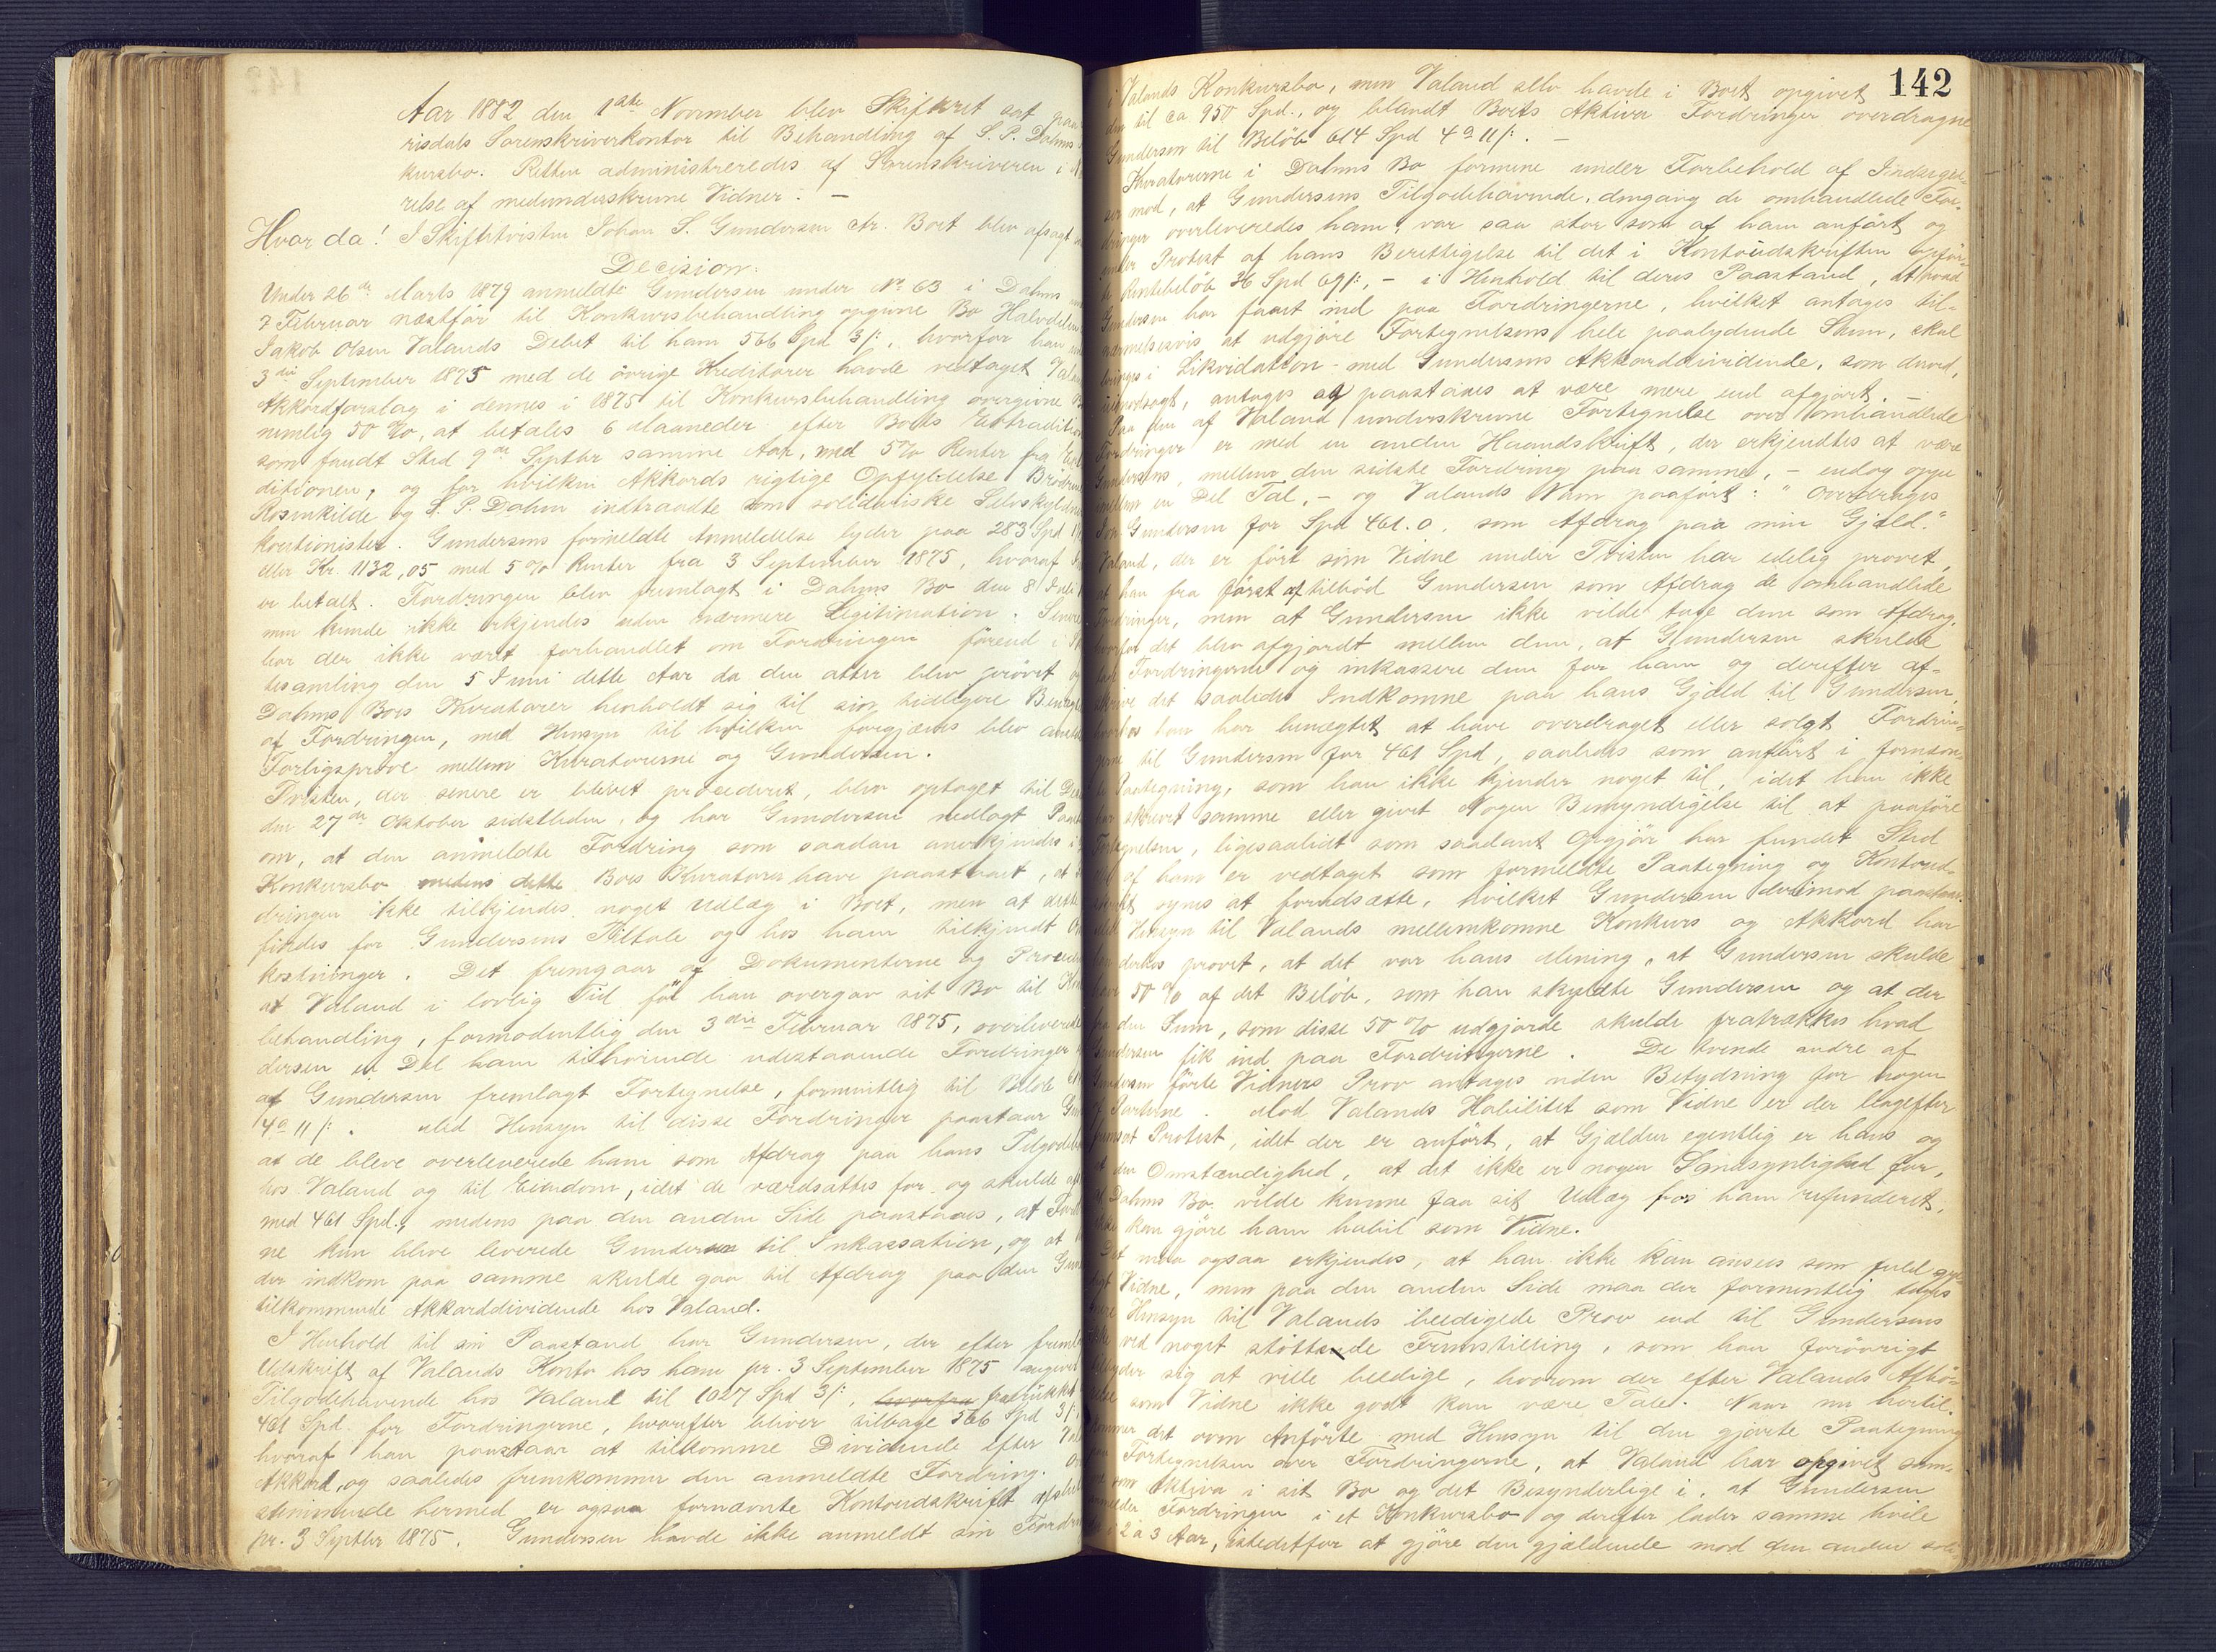 Aar 1882 den 1ste November blev Skifteret sat paa
risdals Sorenskriverkontor til Behandling af S. P. Dahms
kursbo. Retten administreredes af Sorenskriveren i
relse af medunderskrevne Vidner. —
Hvor da! I Skiftetvisten Johan S. Gundersen ctr. Boet blev afsagt
Decision:
Under 26de Marts 1879 anmeldte Gundersen under No 63 i Dahms
7 Februar næstfør til Konkursbehandling opgivne Bo Halvdelen
Jakob Olsen Valands Debet til ham 566 Spd 3 /:, hvorfor han
3die September 1875 med de övrige Kreditorer havde vedtaget
Akkordforslag i dennes i 1875 til Konkursbehandling overgivne
nemlig 50 %, at betales 6 Maaneder efter Boets Extradition
som fandt Sted 9de Septbr samme Aar, med 5 % Renter fra
ditionen, og for hvilken Akkords rigtige Opfyldelse Brödrene
Rosenkilde og S. P. Dahm indtraadte som solidariske Selvskyldner
kautionister. Gundersens formeldte Anmeldelse lyder paa 283 Spd
eller Kr. 1132,05 med 5 % Renter fra 3 September 1875, hvoraf
er betalt. Fordringen blev fremlagt i Dahms Bo den 8 Juli
men kunde ikke erkjendes uden nærmere Legitimation. Senere
har der ikke været forhandlet om Fordringen förend i
tesamling den 5 Juni dette Aar da den atter blev prövet
Dahms Boes Kuratorer henholdt sig til sin tidligere
af Fordringen, med Hensyn til hvilken forgjæves blev
Forligspröve mellem Kuratorerne og Gundersen.
Tvisten, der senere er blevet procederet, blev optaget til
den 27de Oktober sidstleden, og har Gundersen nedlagt
om, at den anmeldte Fordring som saadan anerkjendes i
Konkursbo medens dette Boes Kuratorer have paastaaet, at
dringen ikke tilkjendes noget Udlæg i Boet, men at dette
findes for Gundersens Tiltale og hos ham tilkjendt
kostninger. Det fremgaar af Dokumenterne og
at Valand i lovlig Tid för han overgav sit Bo til
behandling, formodentlig den 3die Februar 1875, overleverede
dersen en Del ham tilhörende udestaaende Fordringer
af Gundersen fremlagt Fortegnelse, formentlig til Beløb
4 o 11 /:. Med Hensyn til disse Fordringer paastaar
at de bleve overleverede ham som Afdrag paa hans
hos Valand og til Eiendom, idet de værdsattes for og skulde
med 461 Spd., medens paa den anden Side paastaaes, at
ne kun bleve leverede Gundersen til Inkassation, og at
der indkom paa samme skulde gaa til Afdrag paa den
tilkommende Akkorddividende hos Valand.
I Henhold til sin Paastand har Gundersen, der efter
Udskrift af Valands Konto hos ham pr. 3 September 1875 angiver
Tilgodehavende hos Valand til 1027 Spd 3 /:, fratrukket
461 Spd. for Fordringerne, hvorefter bliver tilbage 566 Spd 3 /:,
hvoraf han paastaar at tilkomme Dividende efter
Akkord, og saaledes fremkommer den anmeldte Fordring.
stemmende hermed er ogsaa fornævnte Kontoudskrift
pr. 3 Septbr 1875. Gundersen havde ikke anmeldt sin
142
i Valands Konkursbo, men Valand selv havde i Boet opgivet
den til ca 950 Spd., og blandt Boets Aktiva Fordringer overdragne
Gundersen til Beløb 614 Spd 4 o 11 /:. —
Kuratorerne i Dahms Bo formene under Forbehold af
mod, at Gundersens Tilgodehavende, dengang de omhandlede
overleveredes ham, var saa stor som af ham anfört og
under Protest af hans Berettigelse til det i Kontoudskriften
Rentebelöb 36 Spd 69 /:, — i Henhold til deres Paastand, at hvad
Gundersen har faaet ind paa Fordringerne, hvilket antages
at udgjöre Fortegnelsens hele paalydende Sum, skal
i Likvidation med Gundersens Akkorddividende, som derved,
antages og paastaaes at være mere end afgjort. —
Paa den af Valand underskrevne Fortegnelse over omhandlede
Fordringer er med en anden Haandskrift, der erkjendtes at være
Gundersens, mellem den sidste Fordring paa samme, — endog oppe
mellem en Del Tal, — og Valands Navn paafört: "Overdrages
Gundersen for Spd 461.0. som Afdrag paa min Gjæld."
Valand, der er fört som Vidne under Tvisten har edelig provet,
at han fra först af tilböd Gundersen som Afdrag de omhandlede
Fordringer, men at Gundersen ikke vilde tage dem som Afdrag,
hvorfor det blev afgjordt mellem dem, at Gundersen skulde
Fordringerne og inkassere dem for ham og derefter
det saaledes Indkomne paa hans Gjæld til Gundersen
han har benægtet at have overdraget eller solgt
til Gundersen for 461 Spd, saaledes som anfört i
Paategning, som han ikke kjender noget til, idet han ikke
har skrevet samme eller givet Nogen Bemyndigelse til at paaföre
ligesaalidt som saadant Opgjör har fundet Sted
af ham er vedtaget som formeldte Paategning og
synes at forudsætte, hvilket Gundersen derimod
Hensyn til Valands mellemkomne Konkurs og Akkord har
provet, at det var hans Mening, at Gundersen skulde
have 50 % af det Belöb, som han skyldte Gundersen og at der
fra den Sum, som disse 50 % udgjorde skulde fratrækkes hvad
Gundersen fik ind paa Fordringerne. De tvende andre af
Gundersen förte Vidners Prov antages uden Betydning for nogen
af Parterne. Mod Valands Habilitet som Vidne er der
Protest, idet der er anfört, at Gjælden egentlig er hans og
den Omstændighed, at det ikke er nogen Sandsynlighed for,
at Dahms Bo vilde kunne faa sit Udlæg hos ham refunderet,
kan gjöre ham habil som Vidne.
Det maa ogsaa erkjendes, at han ikke kan ansees som
Vidne, men paa den anden Side maa der formentlig tages
Hensyn til Valands beedigede Prov end til Gundersens
ved noget støttende Fremstilling, som han forövrigt
sig at ville beedige, hvorom der efter Valands
som Vidne ikke godt kan være Tale. Naar nu hertil
det oven Anförte med Hensyn til den gjorte Paategning
Fortegnelsen over Fordringerne, at Valand har opgivet
som Aktiva i sit Bo og det Besynderlige i, at Gundersen
Fordringen i et Konkursbo og derefter lader samme hvile
i 2 à 3 Aar, istedetfor at gjöre den gjældende mod den anden